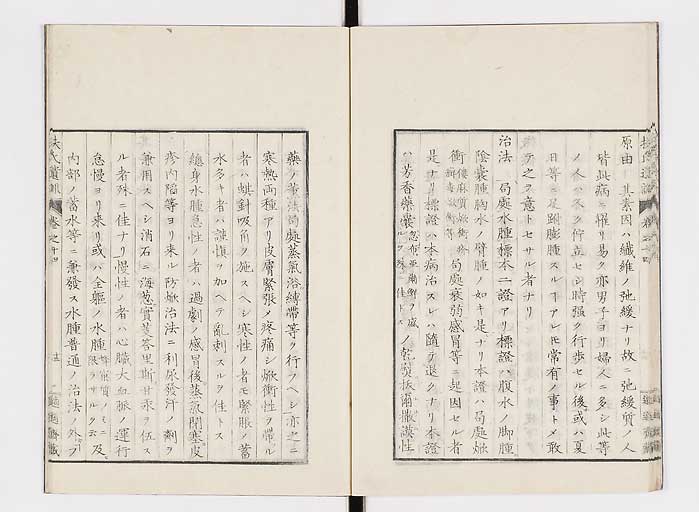 原由 其素因ハ纖維ノ弛緩ナリ故ニ弛緩質ノ人
皆此病ニ罹リ易ク亦男子ヨリ婦人ニ多シ此等
ノ人ハ久ク佇立セシ時强ク行歩セル後或ハ夏
日等ニ足跗膨腫スルヿアレ𪜈常有ノ事トメ敢
テ之ヲ意トセサル者ナリ
治法 局處水腫標本二證アリ標證ハ腹水ノ脚腫
陰囊腫胸水ノ臂腫ノ如キ是ナリ本證ハ局處焮
衝 局處衰弱感冒等ニ起因セル者
是ナリ標證ハ本病治スレハ隨テ退クナリ本證
ハ芳香藥囊 乾質扳爾撒謨性
藥ノ 局處蒸氣浴縛帶等ヲ行フヘシ亦之ニ
寒熱兩種アリ皮膚緊張メ疼痛シ焮衝性ヲ帶ル
者ハ蜞針吸角ヲ施スヘシ寒性ノ者モ緊脹メ蓄
水多キ者ハ謹愼ヲ加ヘテ亂刺スルヲ佳トス
總身水腫急性ノ者ハ過劇ノ感冒後蒸氣閉塞皮
疹内陷等ヨリ來ル防焮治法ニ利尿發汗ノ劑ヲ
兼用スヘシ消石ニ海葱實芰荅里斯甘汞ヲ伍ス
ル者殊ニ佳ナリ慢性ノ者ハ心臟大血脈ノ運行
怠慢ヨリ來リ或ハ全軀ノ水腫 及
内部ノ蓄水等ニ兼發ス水腫普通ノ治法ノ外
扶氏遺訓 卷之十四